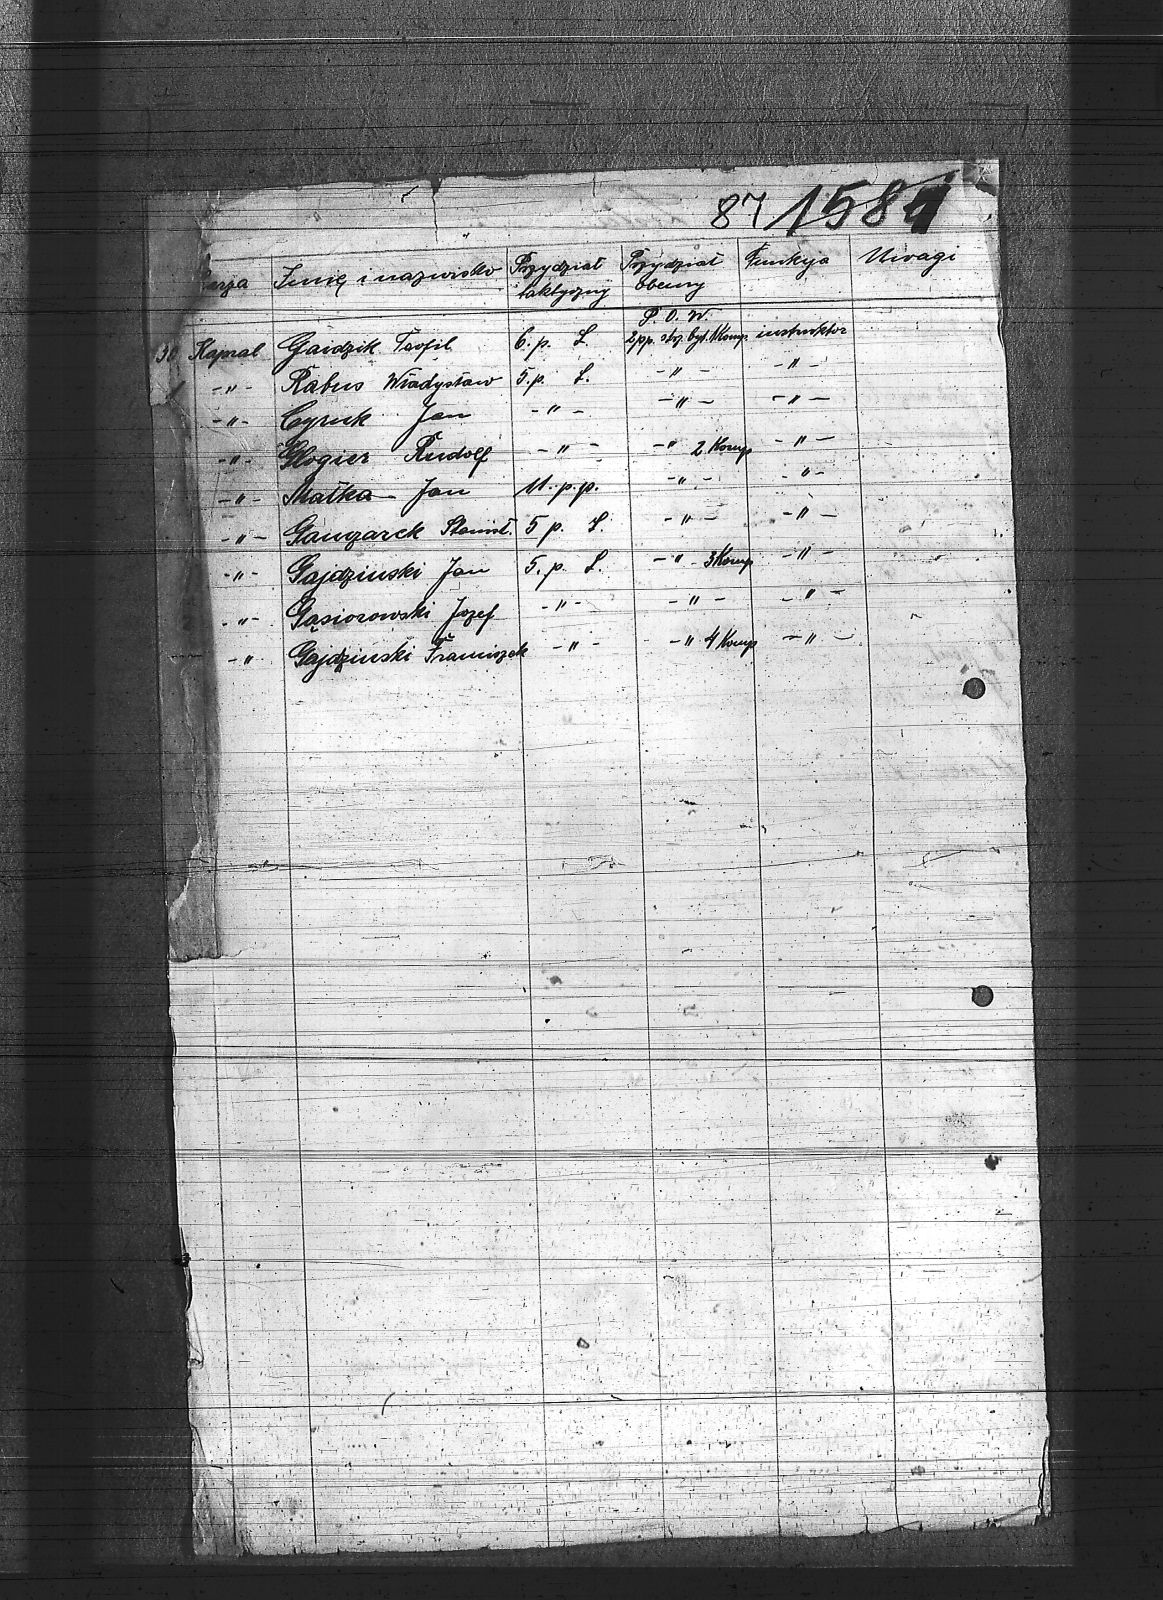 87 1584
Imię i nazwisko Przydział Przydział Funkcja Uwagi
taktyczny obecny
P. O. W.
30 Kapral Gaidzik Teofil 6. p. L. 2 pp. 1 Komp. instruktor
-"- Rabus Władysław 5. p. L. -"- -"-
-"- Cyruk Jan -"- -"- -"-
-"- Glogier Rudolf -"- -"- 2 Komp -"-
-"- Małka Jan 11. p.p. -"- -"-
-"- Ganczarek Stanisł. 5 p. L. -"- -"-
-"- Gajdzinski Jan 5. p. L. -"- 3 Komp -"-
-"- Gąsiorowski Jozef -"- -"- -"-
-"- Gajdzinski Franciszek -"- -"- 4 Komp -"-